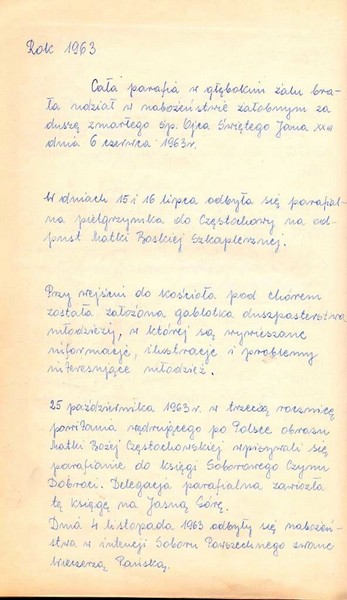 Rok 1963
Cała parafia w głębokim żalu bra-
ła udział w nabożeństwie żałobnym za
duszę zmarłego śp. Ojca Świętego Jana XXIII
dnia 6 czerwca 1963r.
W dniach 15 i 16 lipca odbyła się parafial-
na pielgrzymka do Częstochowy na od-
pust Matki Boskiej Szkaplerznej.
Przy wejściu do kościoła pod chórem
została założona gablotka duszpasterstwa
młodzieży, w której są wywieszane
informacje, ilustracje i problemy
interesujące młodzież.
25 października 1963r. w trzecią rocznicę
powitania wędrującego po Polsce obrazu
Matki Bożej Częstochowskiej wpisywali się
parafianie do księgi Soborowego Czynu
Dobroci. Delegacja parafialna zawiozła
tę księgę na Jasną Górę.
Dnia 4 listopada 1963 odbyły się nabożeń-
stwa w intencji Soboru Powszechnego zwane
Wieczerzą Pańską.